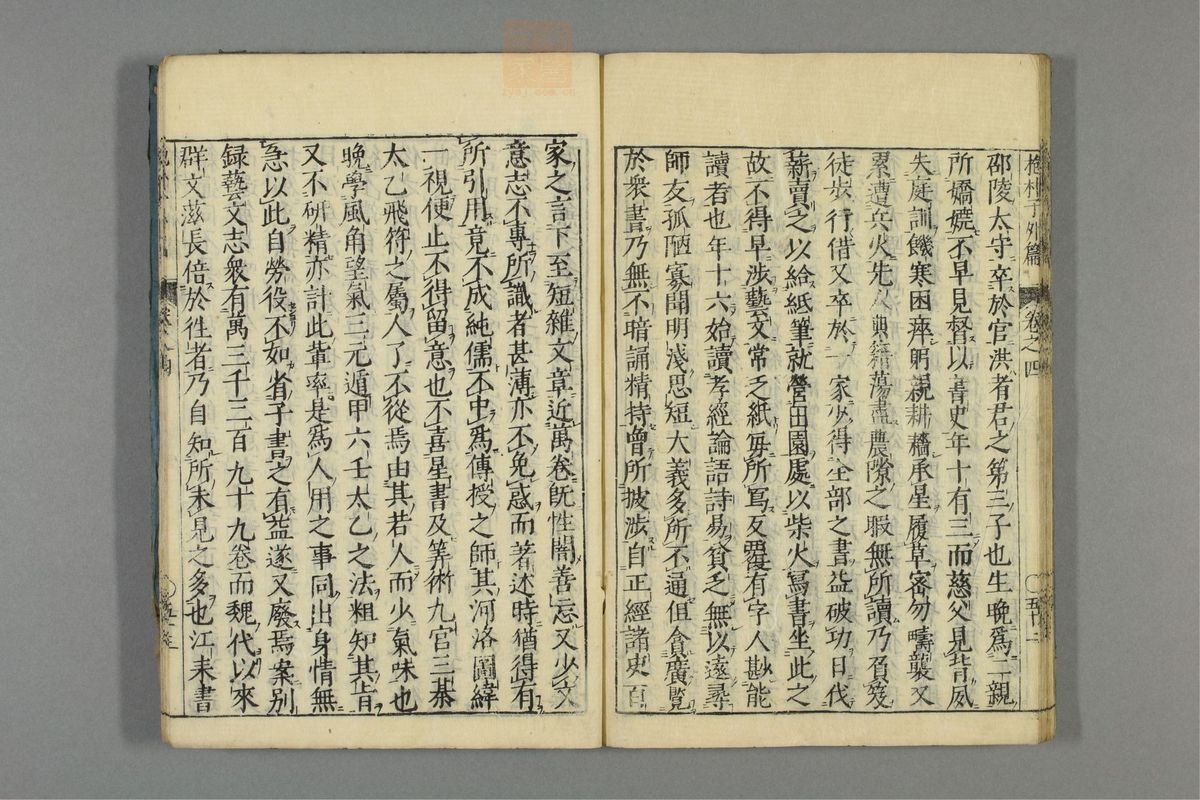 抱朴子外篇 卷之四 五十二
邵陵太守卒於官洪者君之第三子也生晩爲二親
所嬌嬈不早見督以書史年十有三而慈父見背夙
失庭訓饑寒困瘁躬親耕穡承星履草密勿疇襲又
累遭兵火先人典籍蕩盡農隙之暇無所讀乃負笈
徒步行借又卒於一家少得全部之書益破功日伐
薪賣之以給紙筆就營田園處以柴火寫書坐此之
故不得早涉藝文常乏紙每所寫反覆有字人尠能
讀者也年十六始讀孝經論語詩易貧乏無以遠尋
師友孤陋寡聞明淺思短大義多所不通但貪廣覽
於衆書乃無不暗誦精持曾所披涉自正經諸史百
家之言下至短雜文章近萬卷旣性闇善忘又少文
意志不專所識者甚薄亦不免惑而著述時猶得有
所引用竟不成純儒不中爲傳授之師其河洛圖緯
一視便止不得留意也不喜星書及筭術九宮三棊
太乙飛符之屬人了不從焉由其若人而少氣味也
晩學風角望氣三元遁甲六壬太乙之法粗知其旨
又不研精亦計此輩率是爲人用之事同出身情無
急以此自勞役不如省子書之有益遂又廢焉案别
録藝文志衆有萬三千二百九十九卷而魏代以來
群文滋長倍於徃者乃自知所未見之多也江表書